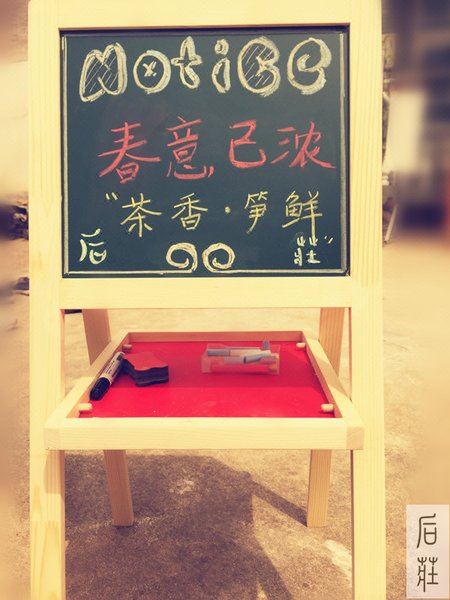 Notice
春意,已浓
“茶香·笋鲜
后 莊”
后莊